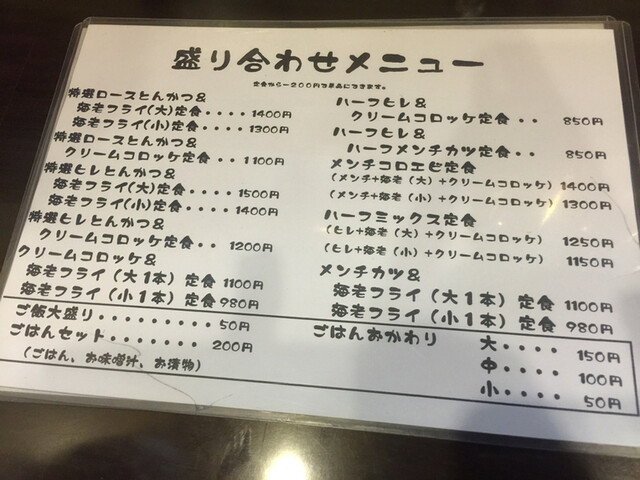 盛り合わせメニュー
定食から-200円で単品にできます。
特選ロースとんかつ&
海老フライ(大)定食・・・・1400円
海老フライ(小)定食・・・・1300円
特選ロースとんかつ&
クリームコロッケ定食・・1100円
特選ヒレとんかつ&
海老フライ(大)定食・・・・1500円
海老フライ(小)定食・・・・1400円
特選ヒレとんかつ&
クリームコロッケ定食・・1200円
クリームコロッケ&
海老フライ(大1本)定食1100円
海老フライ(小1本)定食980円
ハーフヒレ&
クリームコロッケ定食・・850円
ハーフヒレ&
ハーフメンチカツ定食・・850円
メンチコロエビ定食
(メンチ+海老(大)+クリームコロッケ)1400円
(メンチ+海老(小)+クリームコロッケ)1300円
ハーフミックス定食
(ヒレ+海老(大)+クリームコロッケ)1250円
(ヒレ+海老(小)+クリームコロッケ)1150円
メンチカツ&
海老フライ(大1本)定食1100円
海老フライ(小1本)定食980円
ご飯大盛り・・・・・・・・・50円
ごはんセット・・・・・・・200円
(ごはん、お味噌汁、お漬物)
ごはんおかわり 大・・・・150円
中・・・・100円
小・・・・50円